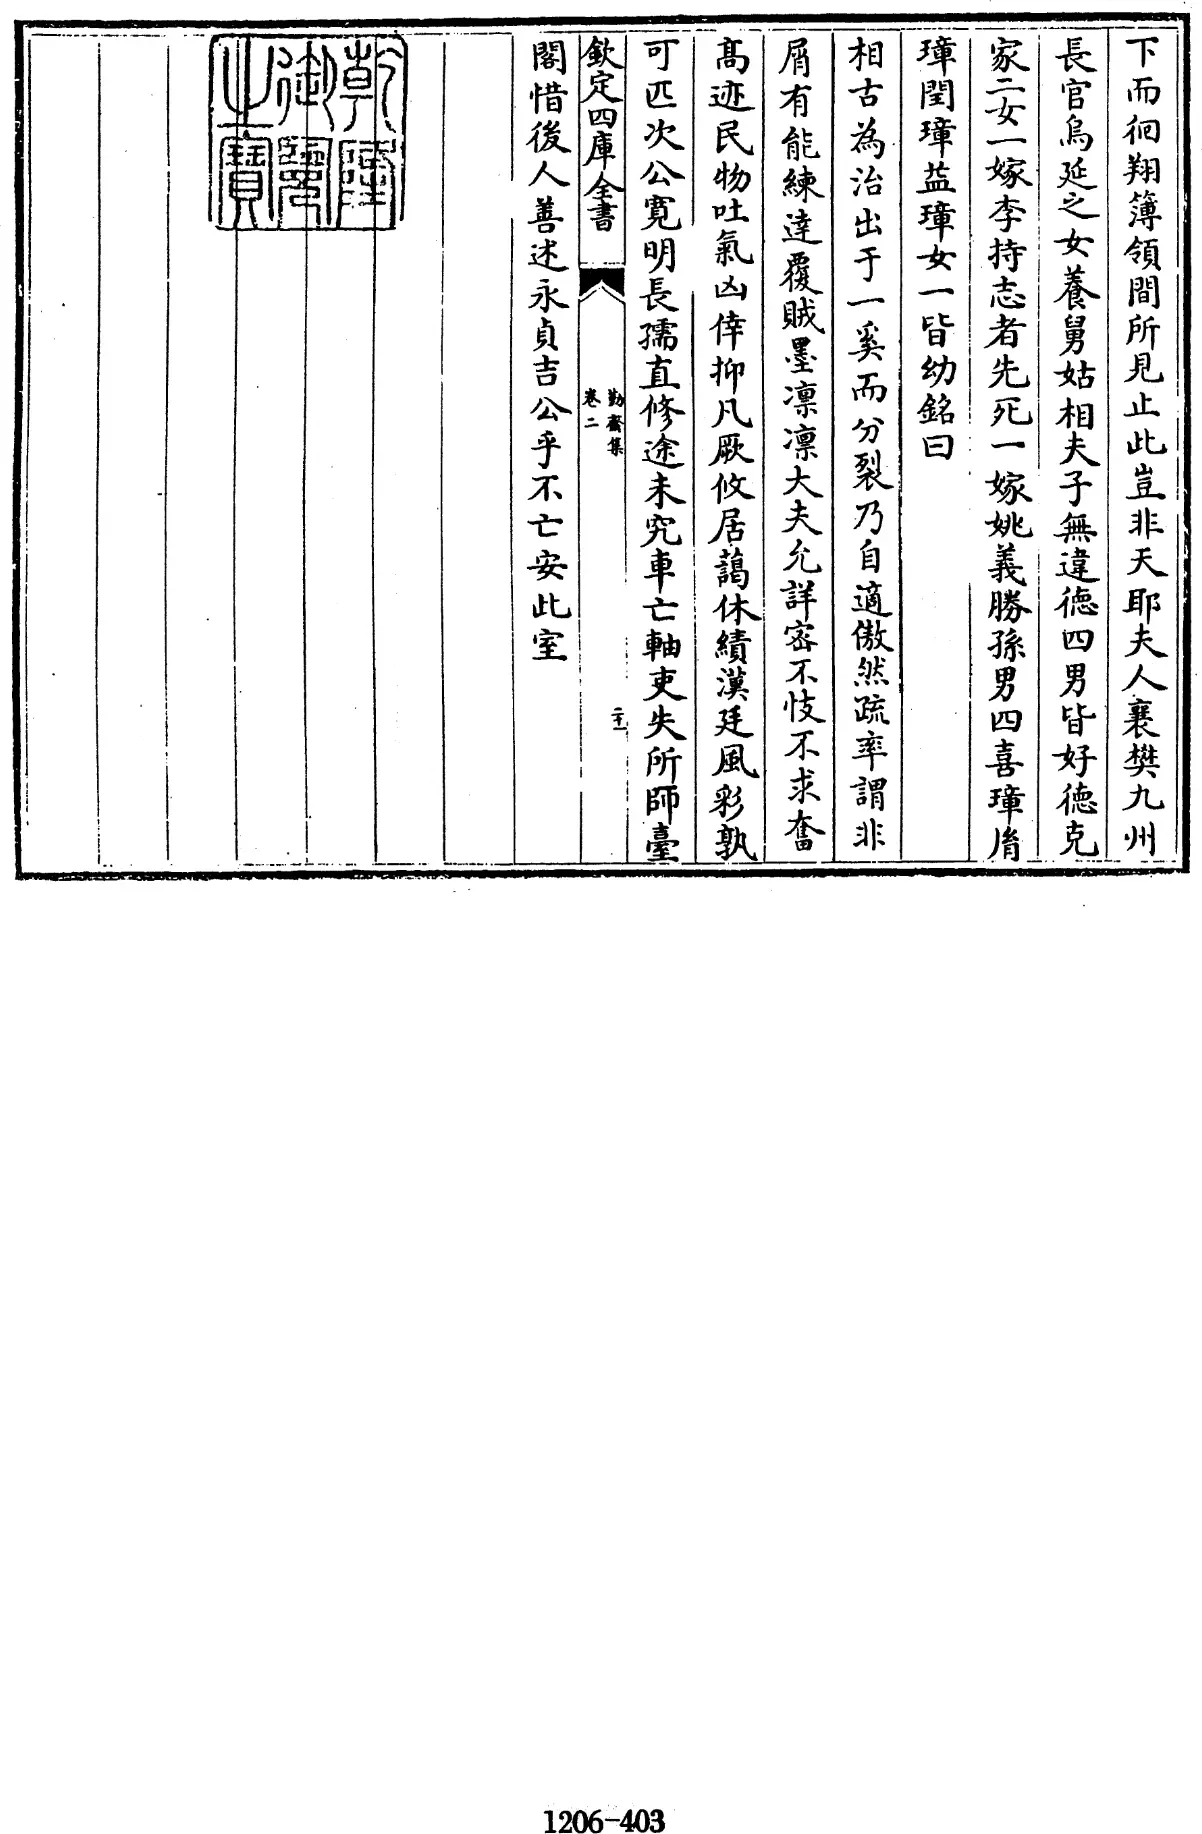 下而徊翔簿領間所見止此豈非天耶夫人襄樊九州
長官烏延之女養舅姑相夫子無違德四男皆好德克
家二女一嫁李持志者先死一嫁姚義勝孫男四喜璋脩
璋閏璋益璋女一皆幼銘曰
相古為治出于一奚而分裂乃自適傲然疏率謂非
屑有能練達覆賊墨凛凛大夫允詳宻不忮不求奮
髙迹民物吐氣凶倖抑凡厥攸居藹休績漢廷風彩孰
可匹次公寛明長孺直修途未究車亡軸吏失所師臺
欽定四庫全書
勤齋集
卷二
二十一
閣惜後人善述永貞吉公乎不亡安此室
乾隆御覽之寶
1206-403